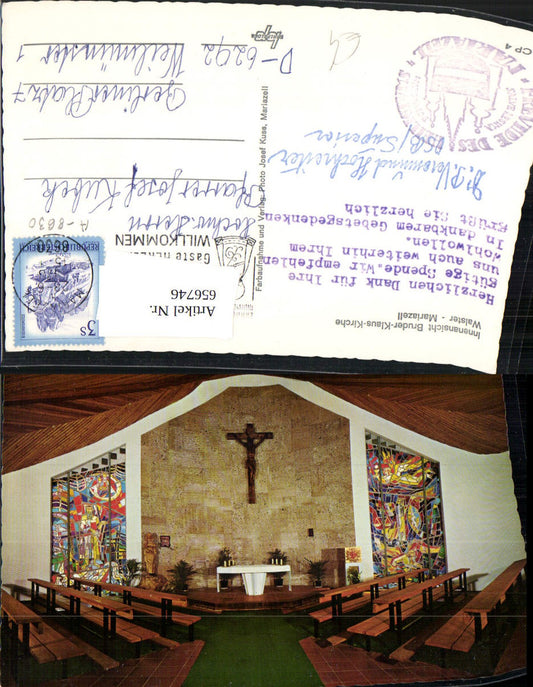 Innenansicht Bruder-Klaus-Kirche
Walster - Mariazell
Herzlichen Dank für Ihre
gütige Spende. Wir empfehlen
uns auch weiterhin Ihrem
Wohlwollen.
In dankbarem Gebetsgedenken
grüßt Sie herzlich
OSB/Superior
Farbaufnahme und Verlag: Photo Josef Kuss, Mariazell
CP 4
REPUBLIK ÖSTERREICH
3 S
WILLKOMMEN
A-8630
Hochw. Herrn
Pfarrer Josef Kubek
Berliner Platz 7
D-6292
Weilmünster 1
Artikel Nr.
656746